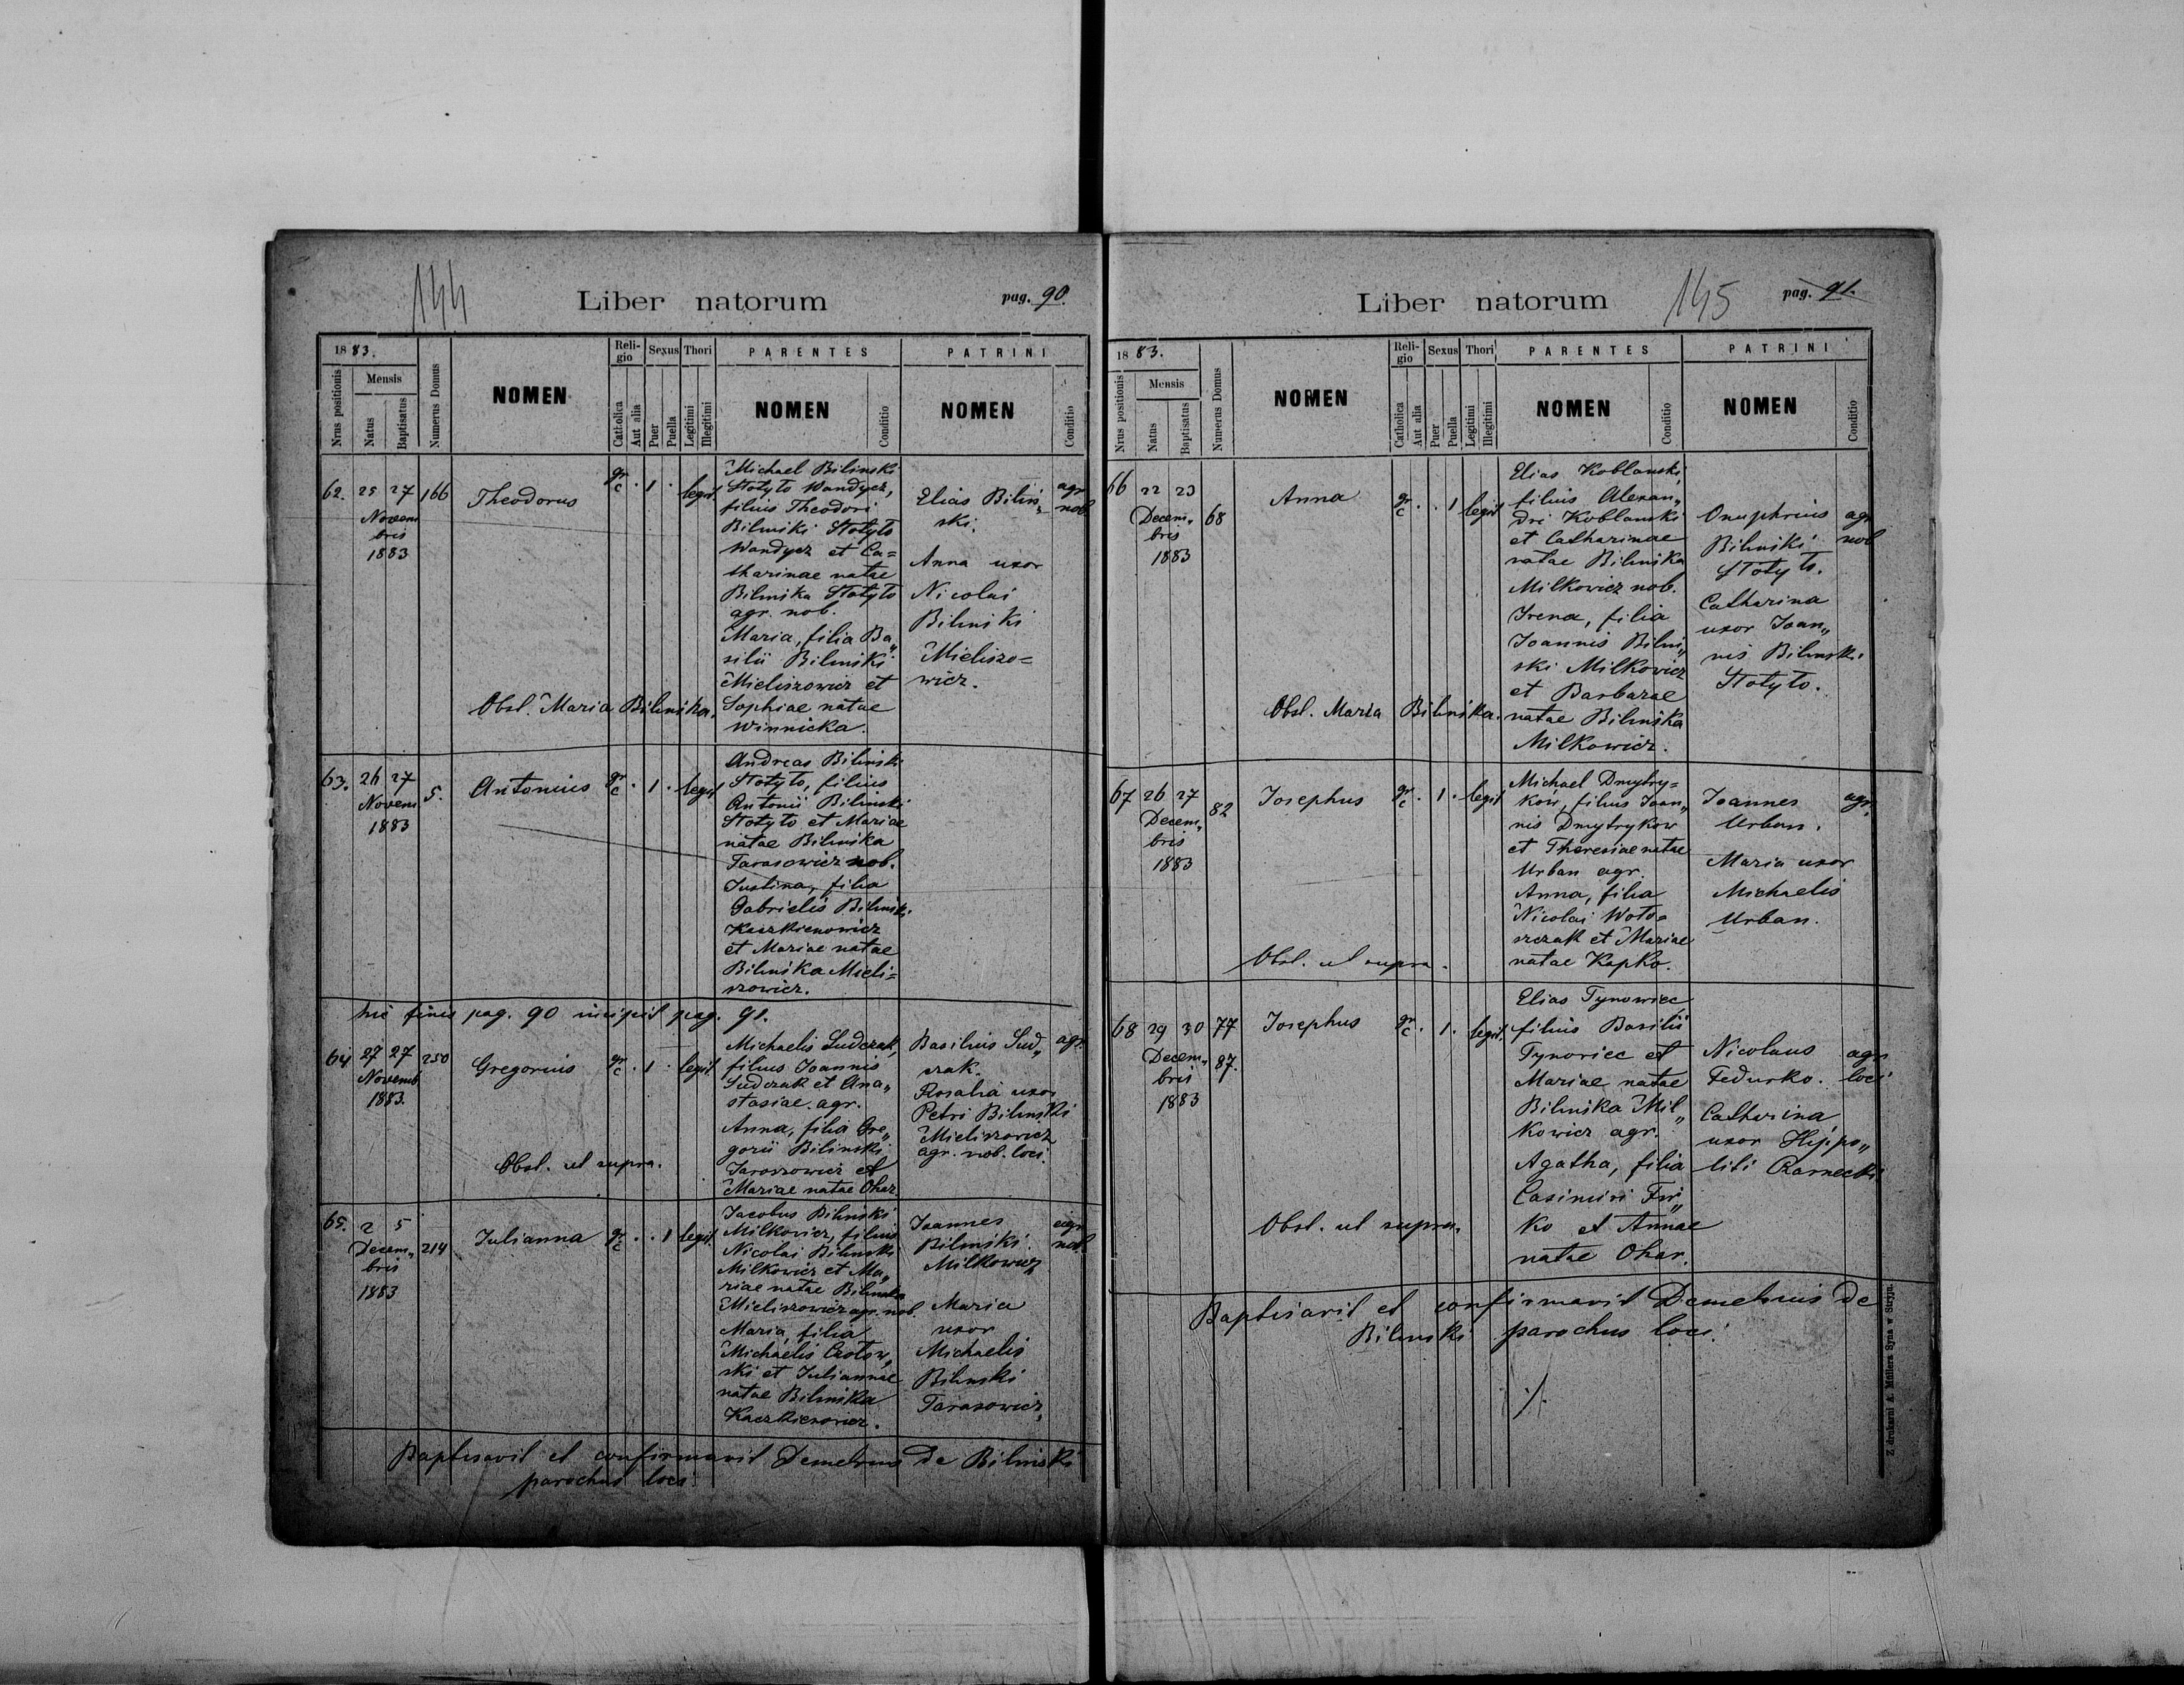 144
Liber natorum
pag. 90.
1883.
Nrus positionis
Mensis
Natus
Baptisatus
Numerus Domus
NOMEN
Reli-
gio
Catholica
Aut alia
Sexus
Puer
Puella
Thori
Legitimi
Illegitimi
PARENTES
NOMEN
Conditio
PATRINI
NOMEN
Conditio
62. 25 27 166
Novem
bris
1883
Theodorus
gr
c . 1 . legit.
Michael Bilinski
Stotyto Wandycz,
filius Theodori
Bilinski Stotyto
Wandycz et Ca=
tharinae natae
Bilinska Stotyto
agr. nob.
Maria, filia Ba„
silii Bilinski
Mieliszowicz et
Sophiae natae
Winnicka.
Elias Bilin„
ski.
Anna uxor
Nicolai
Bilinski
Mieliszo=
wicz.
agr
nob.
Obst. Maria Bilinska.
63. 26 27 5.
Novem
1883
Antonius
gr
c . 1 . legit
Andreas Bilinski
Stotyto, filius
Antonii Bilinski
Stotyto et Mariae
natae Bilinska
Tarasowicz nob.
Justina, filia
Gabrielis Bilinski
Kaczkienowicz
et Mariae natae
Bilinska Mieli=
szowicz.
hic finis pag. 90 incipit pag. 91.
64 27 27 250
Novemb
1883.
Gregorius
gr
c . 1 . legit.
Michaelis Sudczak,
filius Joannis
Sudczak et Ana„
stasiae. agr.
Anna, filia Gre„
gorii Bilinski
Jaroszowicz et
Mariae natae Ohar
Basilius Sud„
czak.
Rosalia uxor
Petri Bilinski
Mieliszowicz
agr. nob. loci.
agr.
Obst. ut supra.
65. 2 5 214
Decem„
bris
1883
Julianna
gr
c . . 1 legit.
Jacobus Bilinski
Milkowicz, filius
Nicolai Bilinski
Milkowicz et Ma„
riae natae Bilinska
Mieliszowicz agr. nob.
Maria, filia
Michaelis
ski et Juliannae
natae Bilinska
Kaczkienowicz.
Joannes
Bilinski
Milkowicz
Maria
uxor
Michaelis
Bilinski
Tarasowicz,
agr
nob.
Baptisavit et confirmavit Demetrius de Bilinski
parochus loci.
Liber natorum
145
pag. 91.
1883.
Nrus positionis
Mensis
Natus
Baptisatus
Numerus Domus
NOMEN
Reli-
gio
Catholica
Aut alia
Sexus
Puer
Puella
Thori
Legitimi
Illegitimi
PARENTES
NOMEN
Conditio
PATRINI
NOMEN
Conditio
66 22 23 68
Decem„
bris
1883
Anna
gr
c . . 1 legit
Elias Koblanski,
filius Alexan„
dri Koblanski
et Catharinae
natae Bilinska
Milkowicz nob.
Irena, filia
Joannis Bilin„
ski Milkowicz
et Barbarae
natae Bilinska
Milkowicz.
Onuphrius
Bilinski
Stotyto.
Catharina
uxor Joan„
nis Bilinski
Stotyto.
agr
nob
Obst. Maria Bilinska.
67 26 27 82
Decem„
bris
1883
Josephus
gr
c . 1 . legit
Michael Dmytry=
ków, filius Joan„
nis Dmytrykow
et Theresiae natae
Urban agr.
Anna, filia
Nicolai Woto=
szczak et Mariae
natae Kopko.
Joannes
Urban.
Maria uxor
Michaelis
Urban.
agr.
Obst. ut supra.
68 29 30 77
87.
Decem„
bris
1883
Josephus
gr
c . 1 . legit.
Elias Tynowiec
filius Basilii
Tynowiec et
Mariae natae
Bilinska Mil„
kowicz agr.
Agatha, filia
Casimiri
ko et Annae
natae Ohar.
Nicolaus
Fedusko.
Catharina
uxor Hippo„
liti Czarnecki
agr
loci
Obst. ut supra.
Baptisavit et confirmavit Demetrius de
Bilinski parochus loci.
Z drukarni A. Müllera Syna w Stryju.